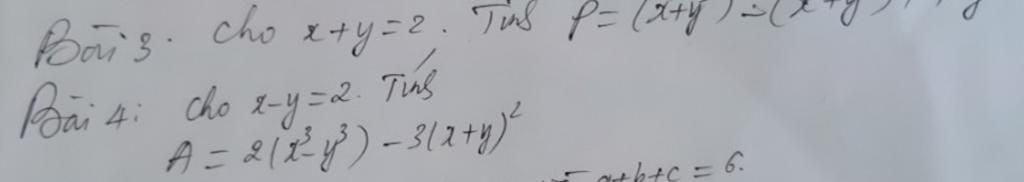 Bài 3. Cho x+y=2. Tính P=(x+y
Bài 4: Cho x-y=2. Tính
A = 2(x³-y³) - 3(x+y)²
a+b+c = 6.